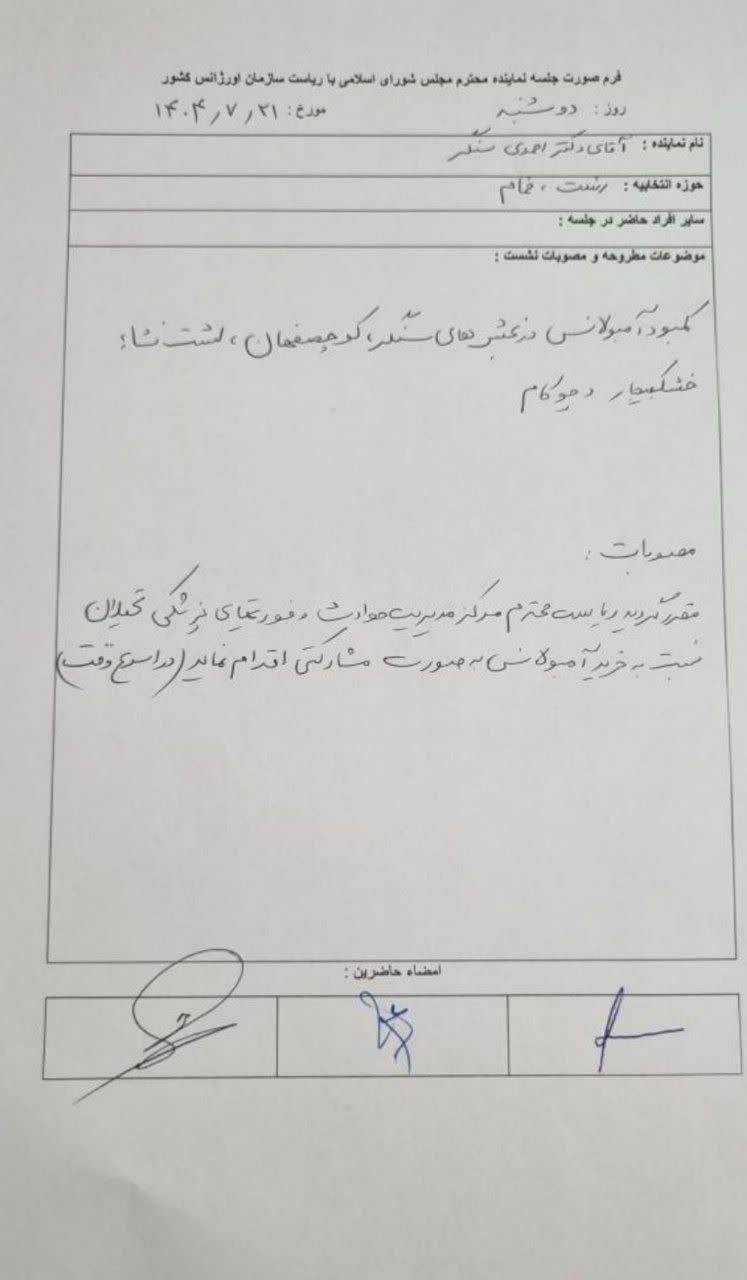 فرم صورت جلسه نماینده محترم مجلس شورای اسلامی با ریاست سازمان اورژانس کشور
روز: دوشنبه مورخ: ۱۴۰۴/۷/۲۱
نام نماینده: آقای دکتر احمدی سنگر
حوزه انتخابیه: رشت، خمام
سایر افراد حاضر در جلسه:
موضوعات مطروحه و مصوبات نشست:
کمبود آمبولانس در بخش های سنگر، کوچصفهان، لشت نشاء،
خشکبیجار و چوکام
مصوبات:
مقرر گردید ریاست محترم مرکز مدیریت حوادث و فوریتهای پزشکی گیلان
نسبت به خرید آمبولانس به صورت مشارکتی اقدام نماید (در اسرع وقت)
امضاء حاضرین: